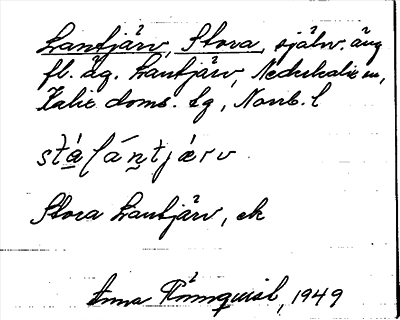 Lantjärv, Stora, självv. äng
fl. äg. Lantjärv, Nederkalix sn,
Kalix doms. tg, Norrb. l
stá̱ lán̠tjærv
Stora Lantjärv, ek
Anna Rönnquist, 1949